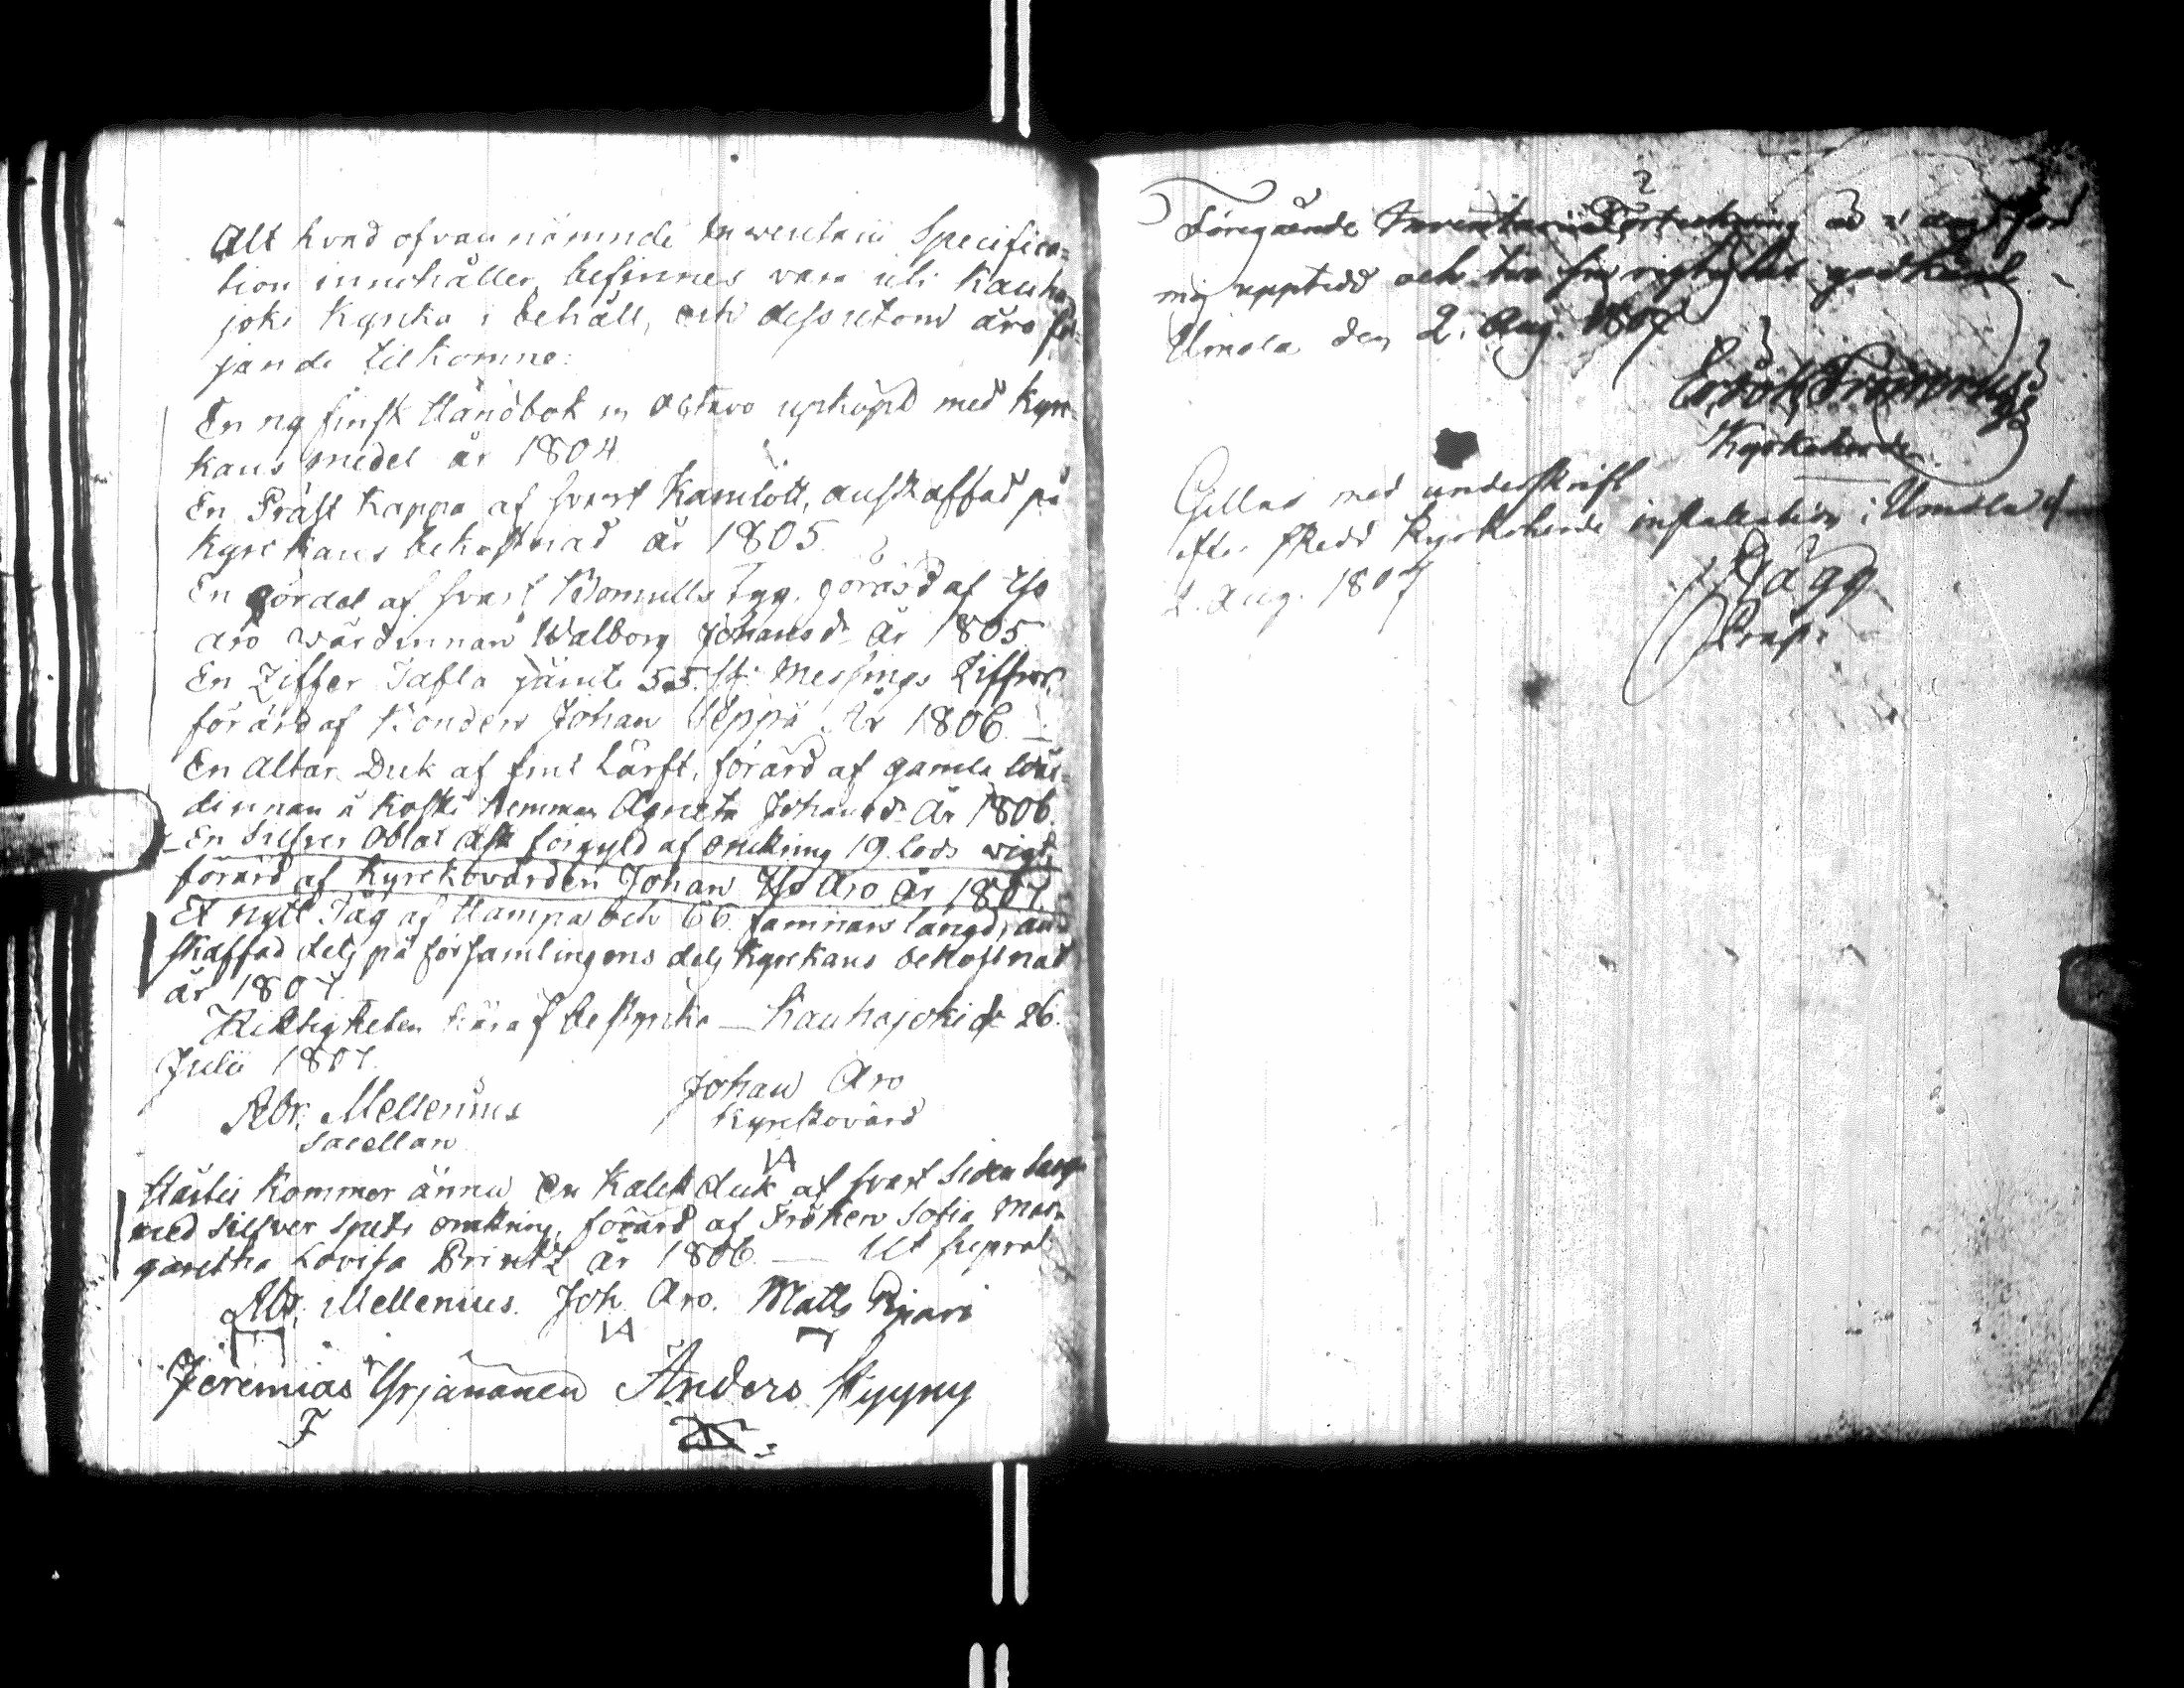 Alt hvad ofvannämnde Inventarii Specifica=
tion innehåller, befinnes vara uti Kauha
joki Kyrcka i behåll, och dessutom äro föl=
jande tilkomne:
En ny finsk Handbok in Octavo upköpt med Kyrc
kans medel år 1804
En Präst Kappa af svart Kamlott, anskaffad på
Kyrckans bekostnad år 1805
En Gördel af svart Bomulls Tyg, förärd af Yso
Aro Wärdinnan Walborg Johansdr År 1805
En Ziffer Tafla jämte 55. st. Messings Ziffror,
förärd af Bonden Johan Seppä År 1806. —
En Altar Duk af fint Lärft, förärd af gamla Wär=
dinnan å Koski hemman Agneta Johansdr År 1806.
En Silfver Oblat Ask förgyld af omkring 19 lods wigt,
förärd af Kyrckovärden Johan Yso Aro år 1807
Et nytt Tåg af Hampa och 66 famnars längd, an=
skaffad dels på församlingens dels Kyrckans bekostnad
år 1807.
Riktigheten häraf bestyrcka — Kauhajoki d. 26.
Julii 1807.
Abr. Mellenius Johan Aro
Sacellan Kyrckovärd
IA
Härtil kommer ännu en Kalk duk af svart Siden
med Silfver spets omkring, förärd af Fröken Sofia Mar
garetha Lovisa Printz år 1806 — Ut supra
Abr. Mellenius. Joh. Aro. Matts
IA
Jeremias Yrjänänen Anders Pyyny
F
Föregående Inventarii Förtekning är i dag för
mig upptedd och till sin rigtighet godkänd
Umola den 2. Aug. 1807
Kyrkoherde.
Gillas med underskrift
efter skedd Kyrkoherde installation i Umola d
2. Aug. 1807
Hägg
Prep.